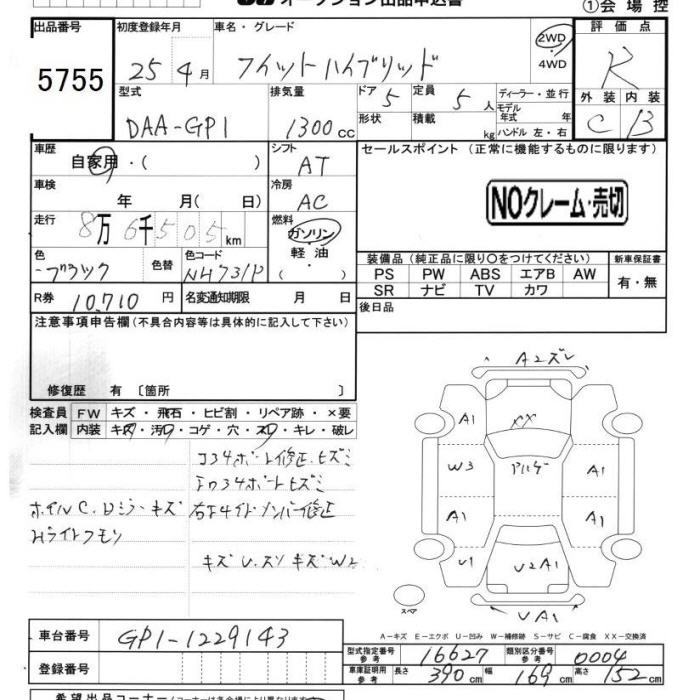 オークション出品申込書
①会場控
出品番号 初度登録年月 車名・グレード 評価点
5755
25年4月 フィットハイブリッド 2WD・4WD R
型式 排気量 ドア 定員 ディーラー・並行 外装 内装
DAA-GP1 1300cc 5 5人 モデル年式 年 C B
形状 積載 kg ハンドル 左・右
車歴 シフト セールスポイント (正常に機能するものに限ります)
自家用・( ) AT
車検 冷房
年 月( 日) AC
NOクレーム・売切
走行 燃料
8万6千505km ガソリン・軽油・( )
色 色替 色コード
ブラック NH731P
装備品 (純正品に限り○をつけてください) 新車保証書
PS PW ABS エアB AW 有・無
SR ナビ TV カワ
R券 10,710円 名変通知期限 月 日
後日品
注意事項申告欄 (不具合内容等は具体的に記入して下さい)
修復歴 有 〔箇所 〕
検査員記入欄
FW キズ・飛石・ヒビ割・リペア跡・×要
内装 キズ・汚れ・コゲ・穴・スレ・キレ・破レ
コ34ボート修正、ヒズミ
ホイルC、Dミラーキズ
Hライトクモリ
キズU、スリキズW2
A2ズレ
A1
XX
W3
A1
A1
A1
U1
U2A1
スペア
UA1
A-キズ E-エクボ U-凹み W-補修跡 S-サビ C-腐食 XX-交換済
車台番号 GP1-1229143
登録番号
型式指定番号 参考 16627 類別区分番号 参考 0004
車庫証明用 参考 長さ 390cm 幅 169cm 高さ 152cm
希望出品コーナー